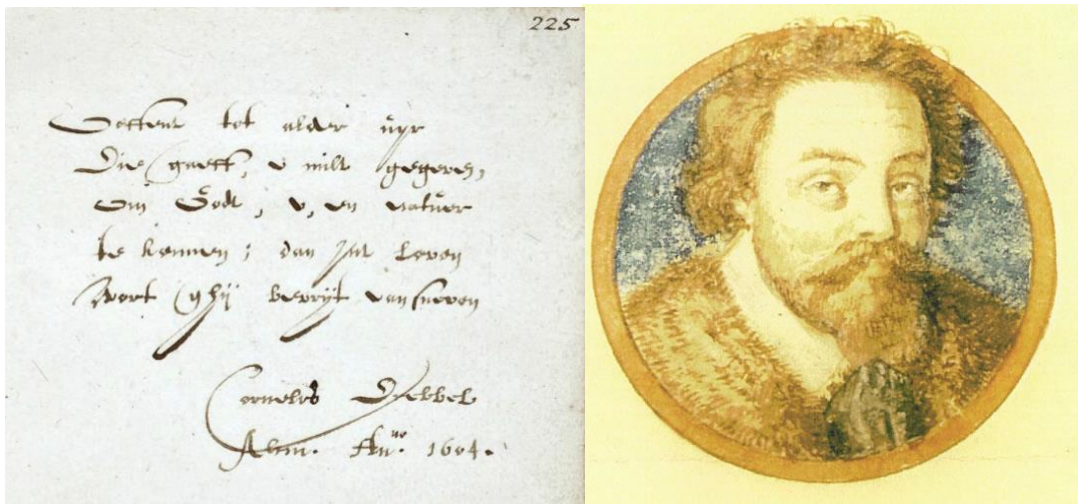 225
Oeffent tot alder üyr
Die gaeff, v milt gegeven,
Om Godt, v, en natüer
te kennen; dan int leven
Wort ghÿ bevrijt van sneven
Cornelis Drebbel
Alcm. Anno. 1604.